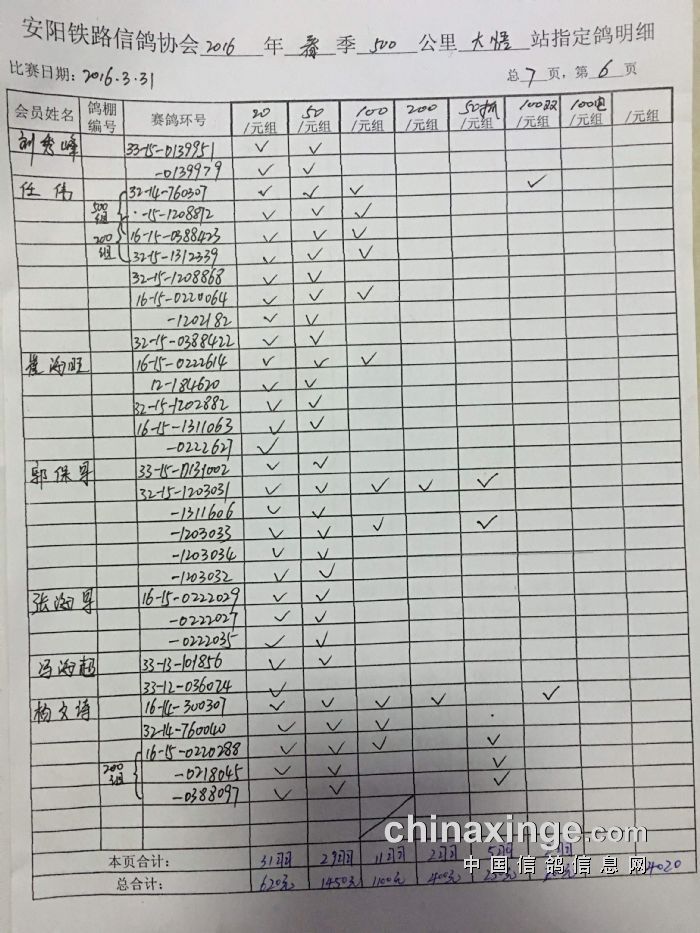 安阳铁路信鸽协会 2016 年 春 季 500 公里 大悟 站指定鸽明细
比赛日期：2016.3.31 总 7 页，第 6 页
会员姓名 鸽棚编号 赛鸽环号 20/元组 50/元组 100/元组 200/元组 50/元组 100双/元组 100/元组 /元组
刘秀峰 33-15-0139951 ✓ ✓
-0139979 ✓ ✓
任伟 32-14-760307 ✓ ✓ ✓ ✓
500组 -15-1208872 ✓ ✓ ✓
200组 16-15-0388423 ✓ ✓ ✓
32-15-1312339 ✓ ✓ ✓
32-15-1208868 ✓ ✓
16-15-0220064 ✓ ✓ ✓
-1202182 ✓ ✓
32-15-0388422 ✓ ✓
崔海旺 16-15-0222614 ✓ ✓ ✓
12-184620 ✓ ✓
32-15-1202882 ✓ ✓
16-15-1311063 ✓ ✓
-0222627 ✓
郭保军 33-15-0131002 ✓ ✓
32-15-1203031 ✓ ✓ ✓ ✓ ✓
-1311606 ✓ ✓
-1203033 ✓ ✓ ✓ ✓
-1203034 ✓ ✓
-1203032 ✓ ✓
张海军 16-15-0222029 ✓ ✓
-0222027 ✓ ✓
-0222035 ✓ ✓
冯海超 33-13-101856 ✓ ✓
33-12-036024 ✓
杨文涛 16-14-300307 ✓ ✓ ✓ ✓ ✓
32-14-760040 ✓ ✓ ✓
16-15-0220288 ✓ ✓ ✓ ✓
200组 -0218045 ✓ ✓ ✓
-0383097 ✓ ✓ ✓
chinaxinge.com
本页合计： 31羽 29羽 11羽 2羽 5羽
中国信鸽信息网
总合计： 620元 1450元 1100元 400元 250元 4020